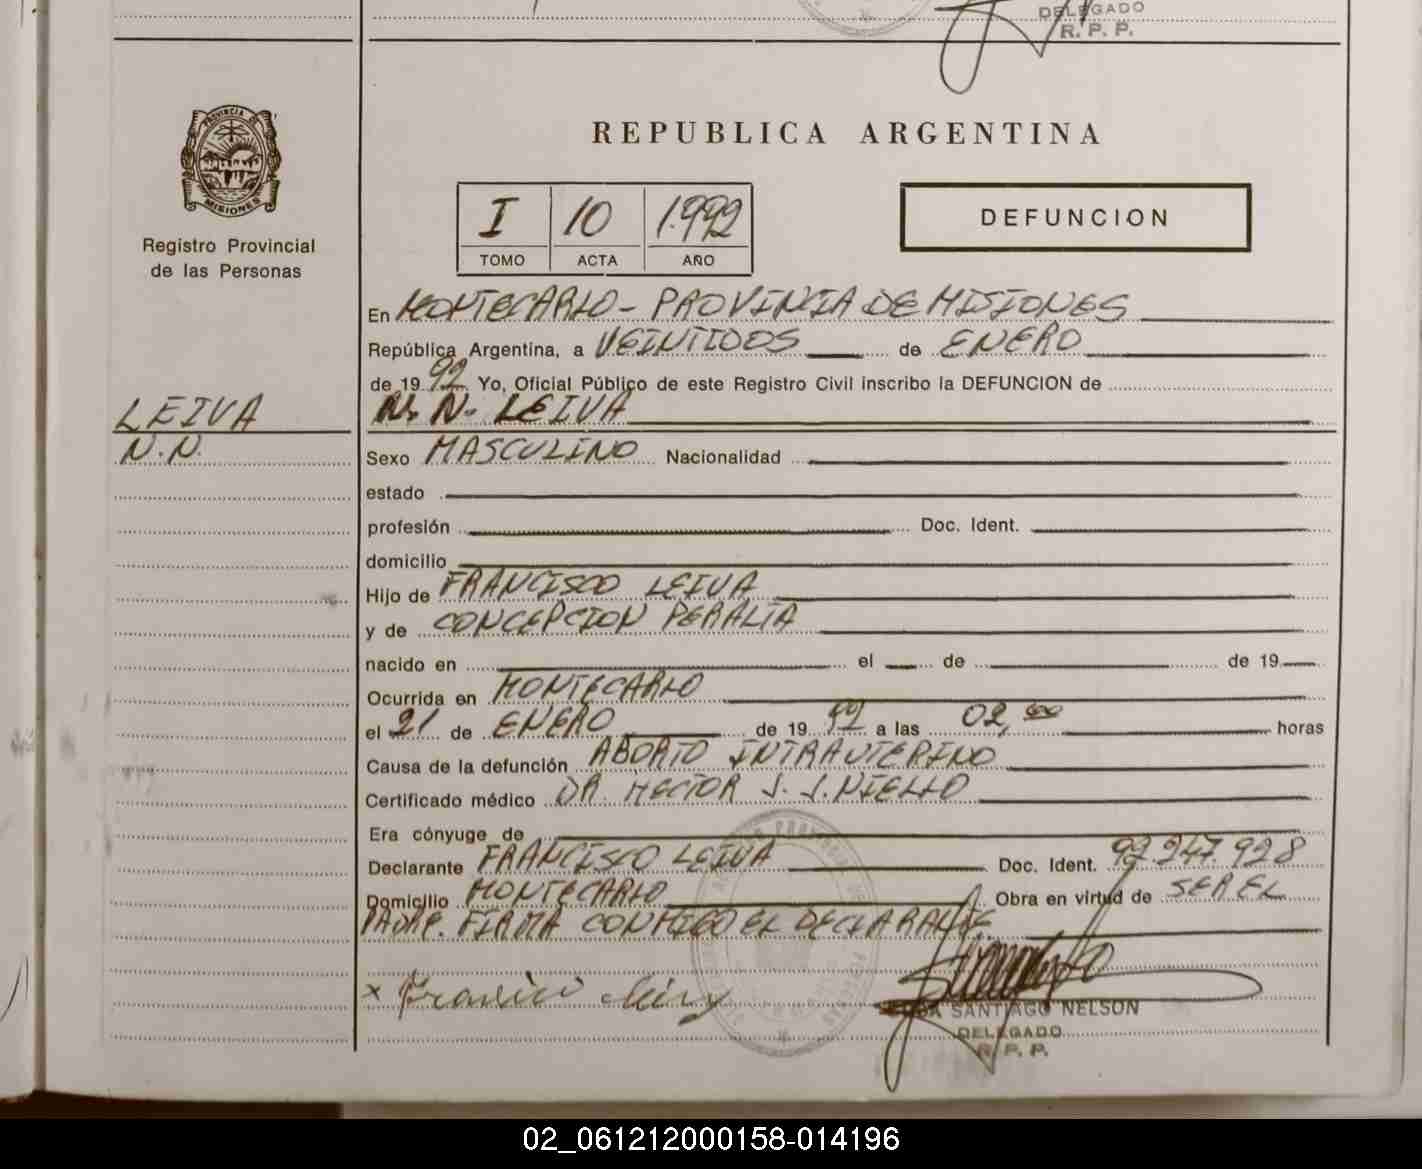 DELEGADO
R. P. P.
PROVINCIA DE
MISIONES
Registro Provincial
de las Personas
REPUBLICA ARGENTINA
I 10 1.992
TOMO ACTA AÑO
DEFUNCION
En MONTECARLO - PROVINCIA DE MISIONES
República Argentina, a VEINTIDOS de ENERO
de 19 92 Yo, Oficial Público de este Registro Civil inscribo la DEFUNCION de
LEIVA
N. N. LEIVA
N.N.
Sexo MASCULINO Nacionalidad
estado
profesión Doc. Ident.
domicilio
Hijo de FRANCISCO LEIVA
y de CONCEPCION PERALTA
nacido en el de de 19
Ocurrida en MONTECARLO
el 21 de ENERO de 19 92 a las 02,00 horas
Causa de la defunción ABORTO INTRAUTERINO
Certificado médico DR. HECTOR J. J. NIELLO
Era cónyuge de
Declarante FRANCISCO LEIVA Doc. Ident. 92.247.928
Domicilio MONTECARLO Obra en virtud de SER EL
PADRE. FIRMA CONMIGO EL DECLARANTE
x
SANTIAGO NELSON
DELEGADO
R. P. P.
02_061212000158-014196